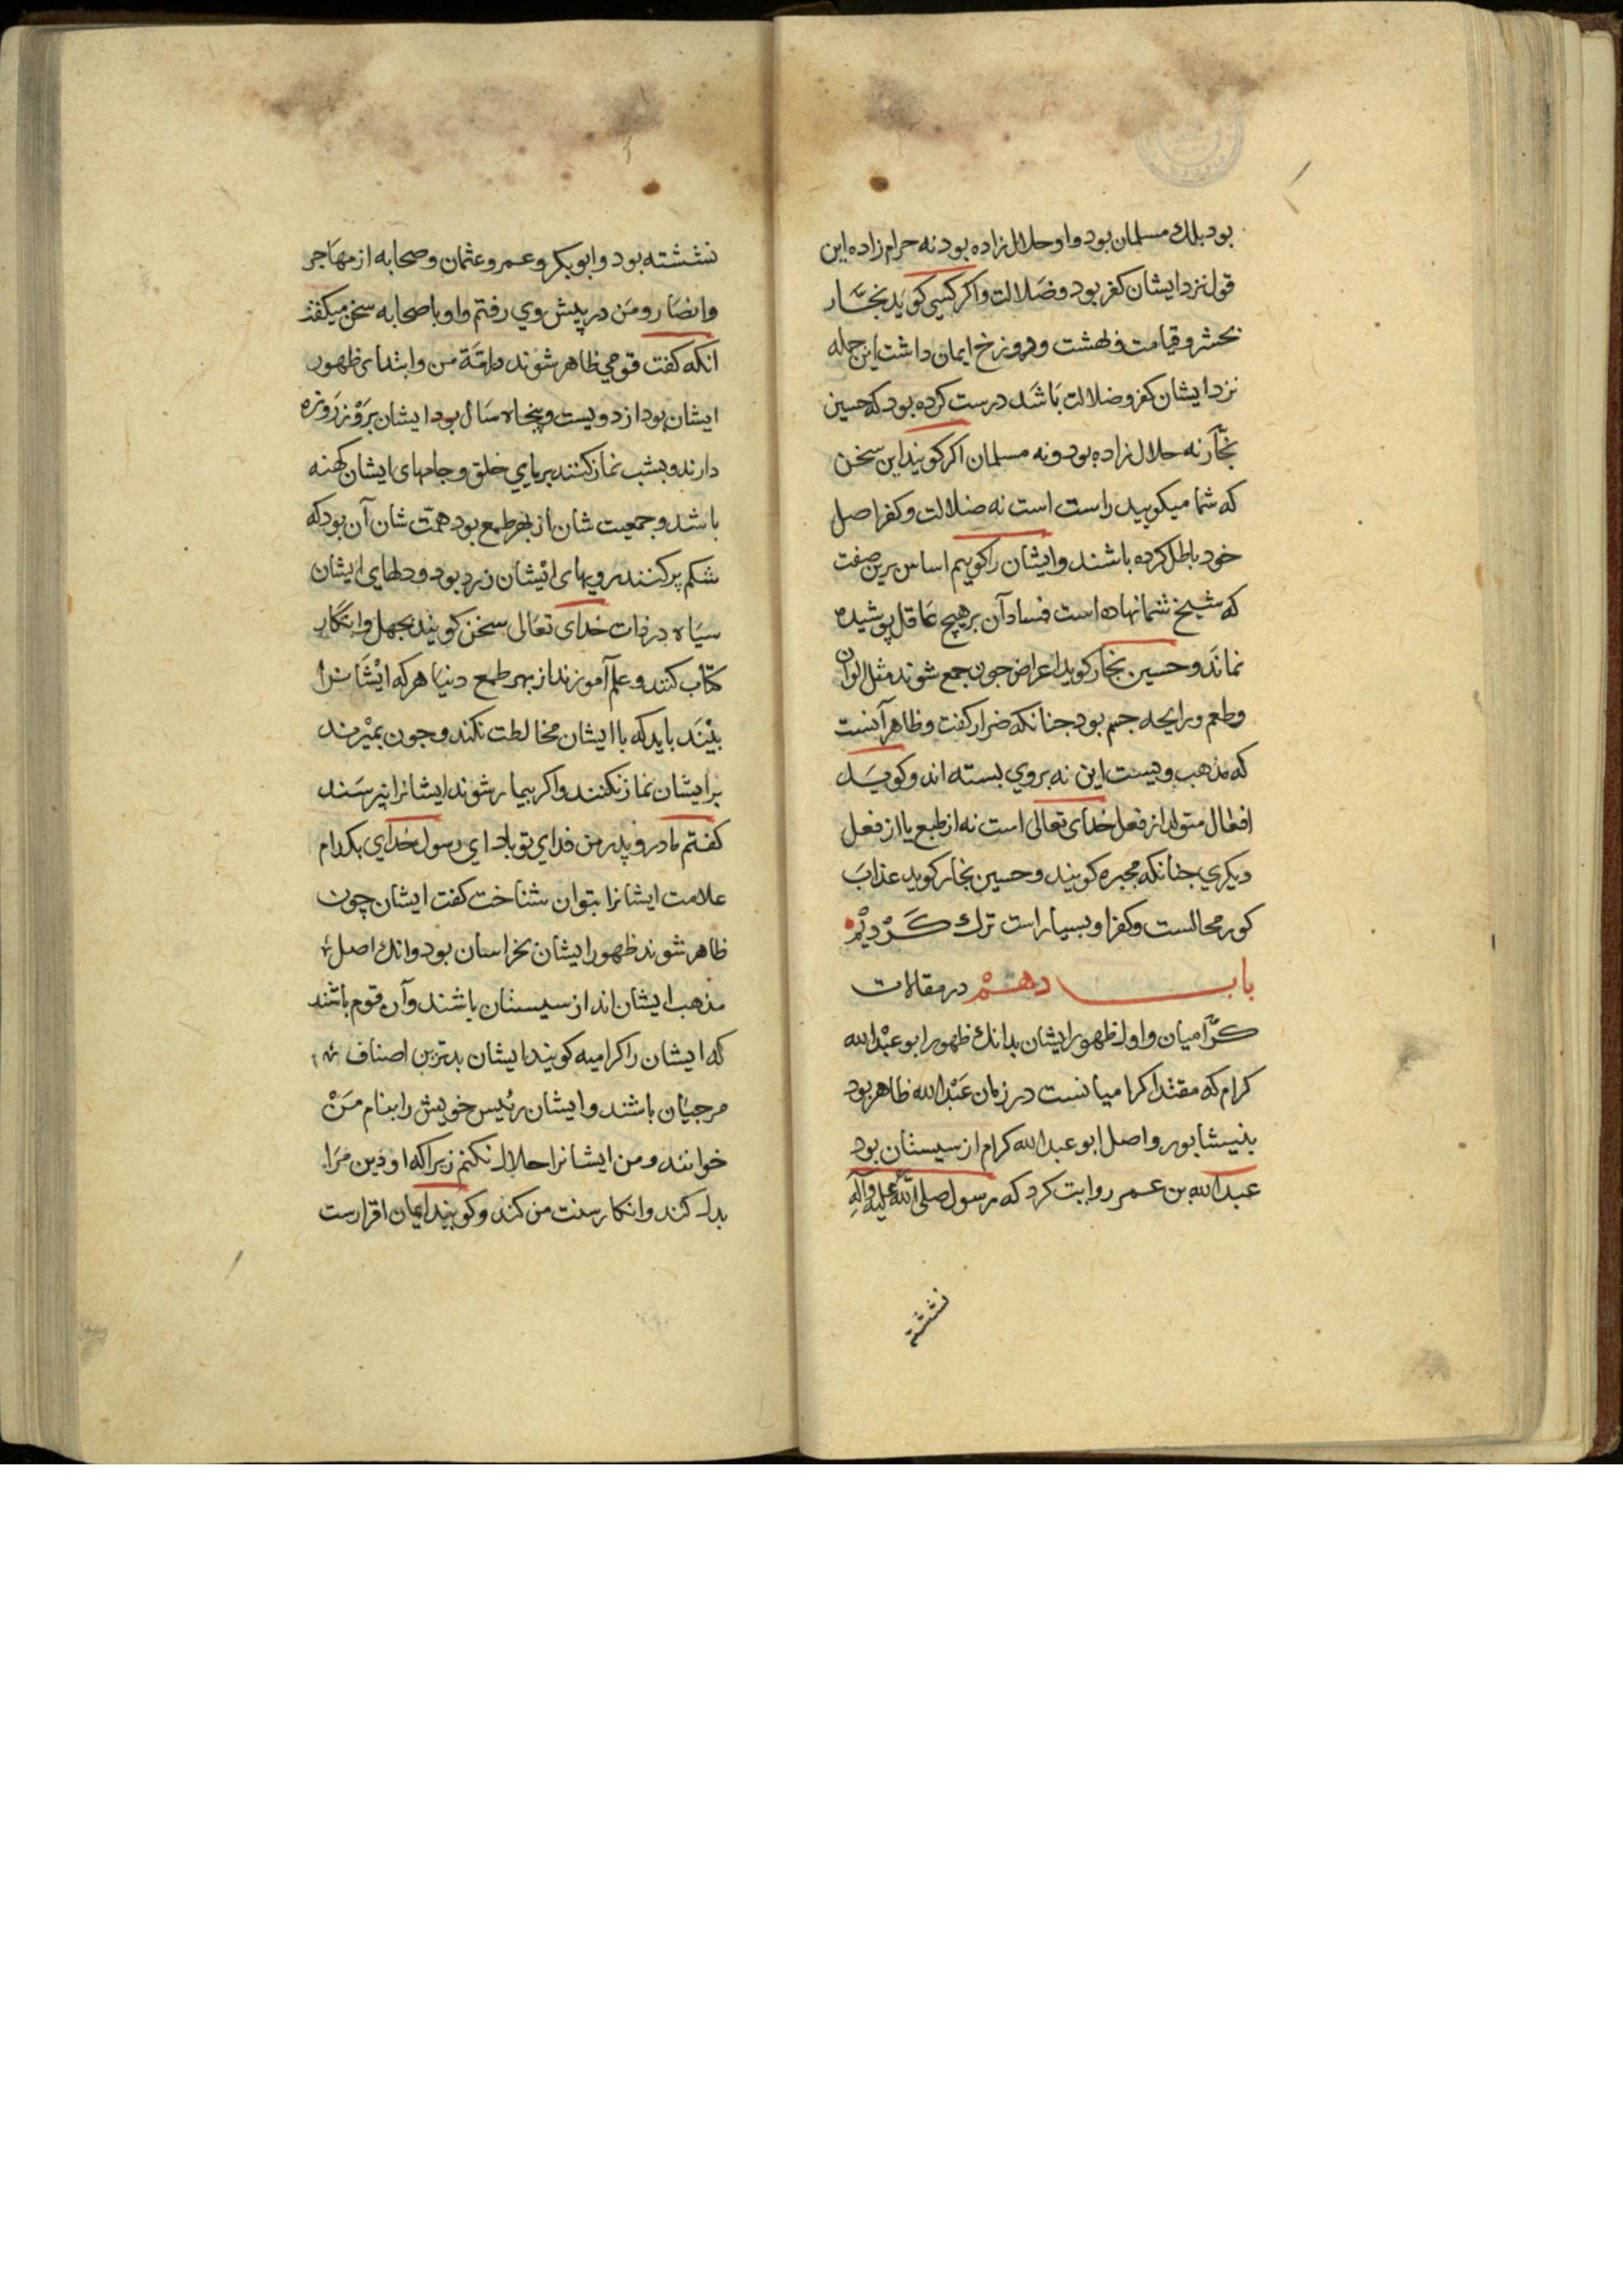 بود بلك مسلمان بود و او حلال زاده بود نه حرام زاده این
قول نزد ایشان کفر بود و ضلالت و اکر کسی کوید نجّار
بحشر و قیامت و بهشت و دوزخ ایمان داشت این جمله
نزد ایشان کفر و ضلالت باشد درست کرده بود که حسین
نجّار نه حلال زاده بود و نه مسلمان اکر کویند این سخن
که شما میکویید راست است نه ضلالت و کفر اصل
خود باطل کرده باشند و ایشان را کوییم اساس برین صفت
که شیخ شما نهاده است فساد آن بر هیچ عاقل پوشیده
نماند و حسین نجار کوید اعراض جون جمع شوند مثل الوان
و طعم و رایحه جسم بود جنانکه ضرار کفت و ظاهر آنست
که مذهب ویست این نه بروی بسته اند و کوید
افعال متولد از فعل خدای تعالی است نه از طبع یا از فعل
دیکری جنانکه مجبره کویند و حسین نجار کوید عذاب
کور محالست و کفر او بسیار است ترك کردیم
باب دهم در مقالات
کرّامیان و اول ظهور ایشان بدانك ظهور ابو عبدالله
کرام که مقتدا کرامیانست در زمان عبدالله ظاهر بود
بنیشابور و اصل ابو عبدالله کرام از سیستان بود
عبدالله بن عمر روایت کرد که رسول صلی الله علیه وآله
نششته
نششته بود و ابوبکر و عمر و عثمان و صحابه از مهاجر
و انصار و من در پیش وی رفتم و او با صحابه سخن میکفت
انکه کفت قومی ظاهر شوند در امّة من و ابتدای ظهور
ایشان بود از دویست و پنجاه سال بود ایشان بروز روزه
دارند و بشب نماز کنند بریای خلق و جامهای ایشان کهنه
باشد و جمعیت شان از بهر طمع بود همّت شان آن بود که
شکم پر کنند رویهای ایشان زرد بود و دلهای ایشان
سیاه در ذات خدای تعالی سخن کویند بجهل و انکار
کتاب کنند و علم آموزند از بهر طمع دنیا هر که ایشانرا
بیند باید که با ایشان مخالطت نکند و جون بمیرند
بر ایشان نماز نکنند و اکر بیمار شوند ایشانرا نپرسند
کفتم مادر و پدر من فدای تو باد ای رسول خدای بکدام
علامت ایشانرا بتوان شناخت کفت ایشان چون
ظاهر شوند ظهور ایشان بخراسان بود و انك اصل
مذهب ایشان اند از سیستان باشند و آن قوم باشند
که ایشان را کرامیه کویند ایشان بدترین اصناف
مرجیان باشند و ایشان رئیس خویش را بنام من
خوانند و من ایشانرا حلال نکنم زیرا که او دین مرا
بدل کند و انکار سنت من کند و کویند ایمان اقرارست